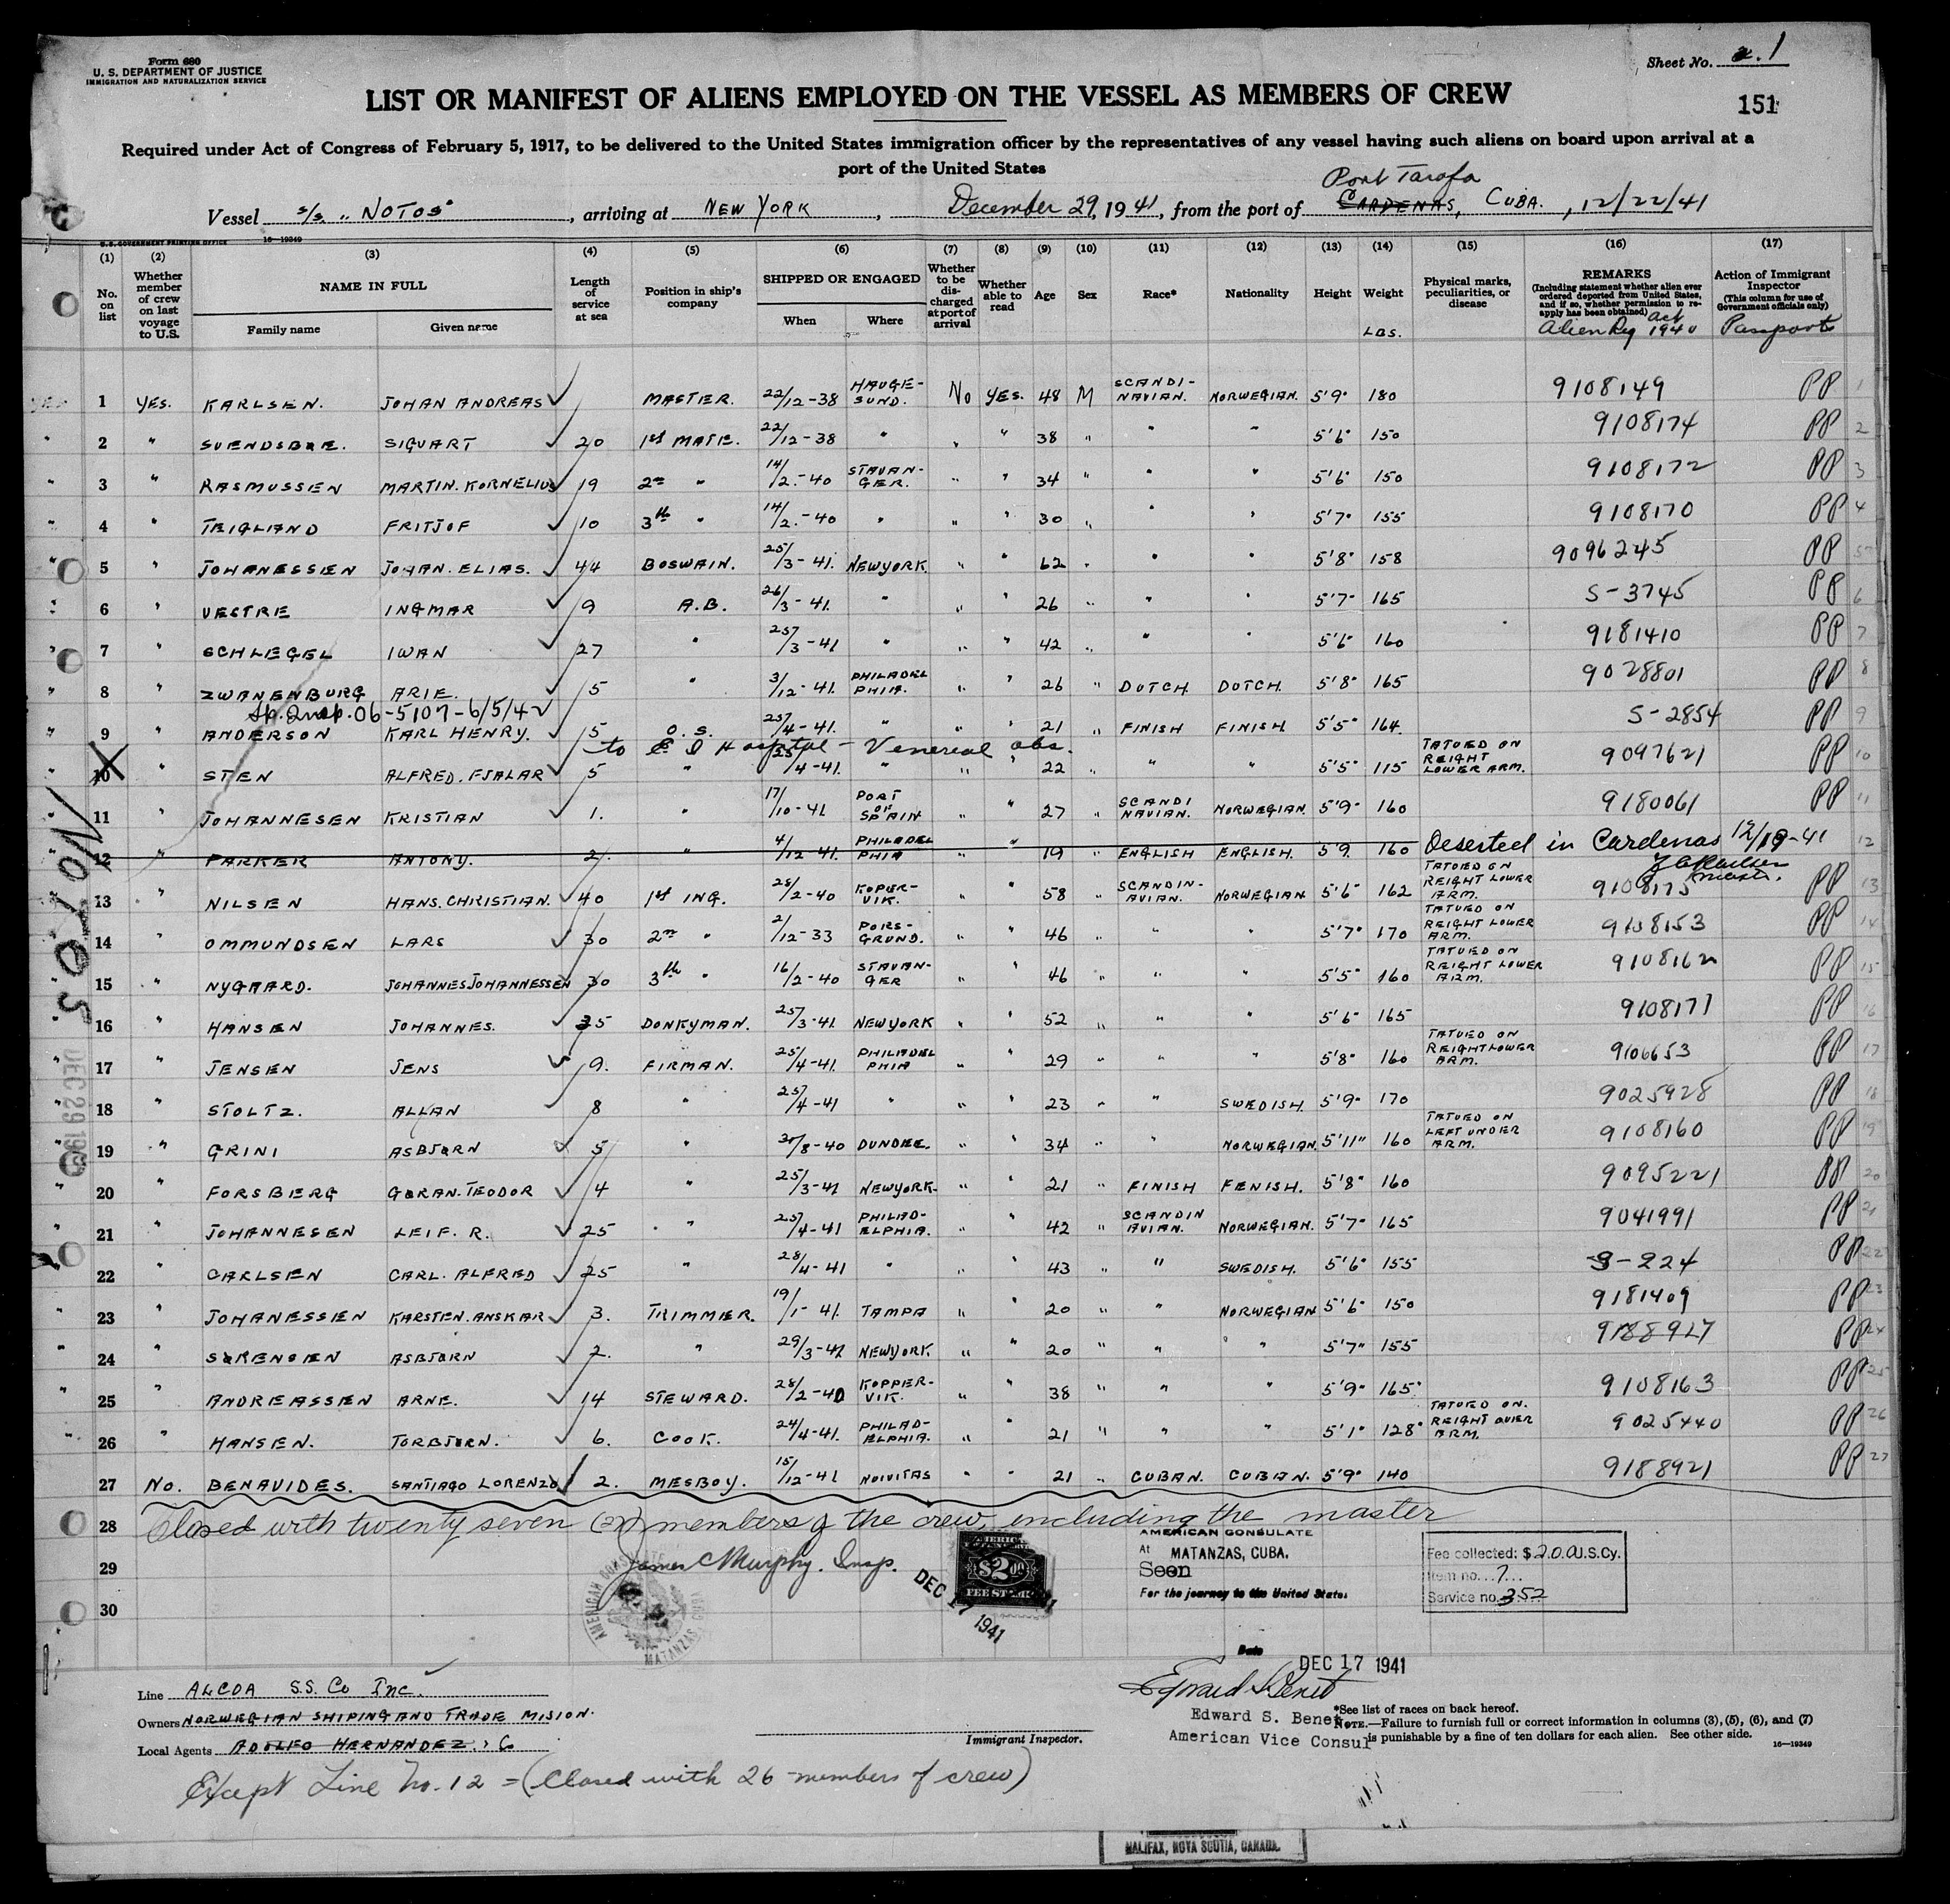 Form 680
U. S. DEPARTMENT OF JUSTICE
IMMIGRATION AND NATURALIZATION SERVICE
Sheet No. 1
LIST OR MANIFEST OF ALIENS EMPLOYED ON THE VESSEL AS MEMBERS OF CREW
151
Required under Act of Congress of February 5, 1917, to be delivered to the United States immigration officer by the representatives of any vessel having such aliens on board upon arrival at a
port of the United States
Port Tarafa
Vessel s/s "NOTOS", arriving at NEW YORK, December 29, 1941, from the port of CARDENAS, CUBA., 12/22/41
U.S. GOVERNMENT PRINTING OFFICE 16—19349
(1) (2) (3) (4) (5) (6) (7) (8) (9) (10) (11) (12) (13) (14) (15) (16) (17)
No. on list
Whether member of crew on last voyage to U.S.
NAME IN FULL
Family name Given name
Length of service at sea
Position in ship's company
SHIPPED OR ENGAGED
When Where
Whether to be discharged at port of arrival
Whether able to read
Age Sex Race* Nationality Height Weight LBS.
Physical marks, peculiarities, or disease
REMARKS
(Including statement whether alien ever ordered deported from United States, and if so, whether permission to reapply has been obtained)
Alien Reg Act 1940
Action of Immigrant Inspector
(This column for use of Government officials only)
Passport
1 YES. KARLSEN. JOHAN ANDREAS MASTER. 22/12-38 HAUGE-SUND. No YES. 48 M SCANDI-NAVIAN. NORWEGIAN. 5'9" 180 9108149 PP 1
2 " SVENDSBØE. SIGUART 20 1st MATE. 22/12-38 " " " 38 " " " 5'6" 150 9108174 PP 2
3 " RASMUSSEN MARTIN. KORNELIUS 19 2nd " 14/2-40 STAVAN-GER. " " 34 " " " 5'6" 150 9108172 PP 3
4 " TEIGLAND FRITJOF 10 3th " 14/2-40 " " " 30 " " " 5'7" 155 9108170 PP 4
5 " JOHANESSIEN JOHAN. ELIAS. 44 BOSWAIN. 25/3-41. NEWYORK. " " 62 " " " 5'8" 158 9096245 PP 5
6 " VESTRE INGMAR 9 A.B. 26/3-41. " " " 26 " " " 5'7" 165 S-3745 PP 6
7 " SCHLEGEL IWAN 27 " 25/3-41 " " " 42 " " " 5'6" 160 9181410 PP 7
8 " ZWANENBURG ARIE. 5 " 3/12-41. PHILADEL PHIA. " " 26 " DUTCH DUTCH. 5'8" 165 9028801 PP 8
Sp. Insp. 06-5107-6/5/42
9 " ANDERSON KARL HENRY. 5 O.S. 25/4-41. " " " 21 " FINISH FINISH. 5'5" 164. S-2854 PP 9
to E I Hospital - Venereal obs.
10 " STEN ALFRED. FJALAR 5 " 25/4-41. " " " 22 " " " 5'5" 115 TATUED ON REIGHT LOWER ARM. 9097621 PP 10
11 " JOHANNESEN KRISTIAN 1. " 17/10-41 PORT OF SPAIN " " 27 " SCANDI NAVIAN. NORWEGIAN. 5'9" 160 9180061 PP 11
12 " PARKER ANTONY. 2. " 4/12-41. PHILADEL PHIA " " 19 " ENGLISH ENGLISH. 5'9. 160 Deserted in Cardenas 12/19-41 12
Master.
13 " NILSEN HANS. CHRISTIAN. 40 1st ING. 28/2-40 KOPER-VIK. " " 58 " SCANDIN-AVIAN. NORWEGIAN 5'6" 162 TATOED ON REIGHT LOWER ARM. 9108175 PP 13
14 " OMMUNDSEN LARS 30 2nd " 2/12-33 PORS-GRUND. " " 46 " " " 5'7" 170 TATUED ON REIGHT LOWER ARM. 9108153 PP 14
15 " NYGAARD. JOHANNES JOHANNESSEN 30 3th " 16/2-40 STAVAN-GER " " 46 " " " 5'5" 160 TATUED ON REIGHT LOWER ARM. 9108162 PP 15
16 " HANSEN JOHANNES. 35 DONKYMAN. 25/3-41. NEWYORK " " 52 " " " 5'6" 165 9108177 PP 16
17 " JENSEN JENS 9. FIRMAN. 25/4-41. PHILADEL PHIA " " 29 " " " 5'8" 160 TATUED ON REIGHT LOWER ARM. 9106653 PP 17
18 " STOLTZ. ALLAN 8 " 25/4-41 " " " 23 " " SWEDISH. 5'9" 170 9025928 PP 18
19 " GRINI ASBJØRN 5 " 20/8-40 DUNDEE. " " 34 " " NORWEGIAN. 5'11" 160 TATUED ON LEFT UNDER ARM. 9108160 PP 19
20 " FORSBERG GØRAN. TEODOR 4 " 25/3-41 NEWYORK- " " 21 " FINISH FENISH. 5'8" 160 9095221 PP 20
21 " JOHANNESEN LEIF. R. 25 " 25/4-41 PHILAD-ELPHIA. " " 42 " SCANDIN AVIAN. NORWEGIAN. 5'7" 165 9041991 PP 21
22 " CARLSEN CARL. ALFRED 25 " 28/4-41 " " " 43 " " SWEDISH. 5'6" 155 S-224 PP 22
23 " JOHANESSIEN KARSTEN. ANSKAR 3. TRIMMER. 19/1-41 TAMPA " " 20 " " NORWEGIAN 5'6" 150 9181409 PP 23
24 " SØRENSEN ASBJØRN 2. " 29/3-41 NEWYORK. " " 20 " " " 5'7" 155 9188917 PP 24
25 " ANDREASSEN ARNE. 14 STEWARD. 28/2-40 KOPPER-VIK. " " 38 " " " 5'9" 165" 9108163 PP 25
26 " HANSEN. TORBJØRN. 6. COOK. 24/4-41. PHILAD-ELPHIA. " " 21 " " " 5'1" 128" TATUED ON. REIGHT OVER ARM. 9025440 PP 26
27 No. BENAVIDES. SANTIAGO LORENZO 2. MESBOY. 15/12-41 NOIVITAS " " 21 " CUBAN. CUBAN. 5'9" 140 9188921 PP 27
28 Closed with twenty seven (27) members of the crew, including the master
29 James C Murphy. Insp.
30
Notos
DEC 29 19
AMERICAN CONSULATE MATANZAS, CUBA
$2.00 FEE STAMP
DEC 17 1941
AMERICAN CONSULATE
At MATANZAS, CUBA.
Seen
For the journey to the United States
Date DEC 17 1941
Fee collected: $2.00 U.S.Cy.
Item no. 7
Service no. 352
Edward S. Benet
Edward S. Benet
American Vice Consul
Line ALCOA S.S. Co Inc.
Owners NORWEGIAN SHIPING AND TRADE MISION.
Local Agents ADOLFO HERNANDEZ.
Immigrant Inspector.
*See list of races on back hereof.
NOTE.—Failure to furnish full or correct information in columns (3), (5), (6), and (7)
is punishable by a fine of ten dollars for each alien. See other side.
16—19349
Except Line No. 12 = (Closed with 26 members of crew)
HALIFAX, NOVA SCOTIA, CANADA.